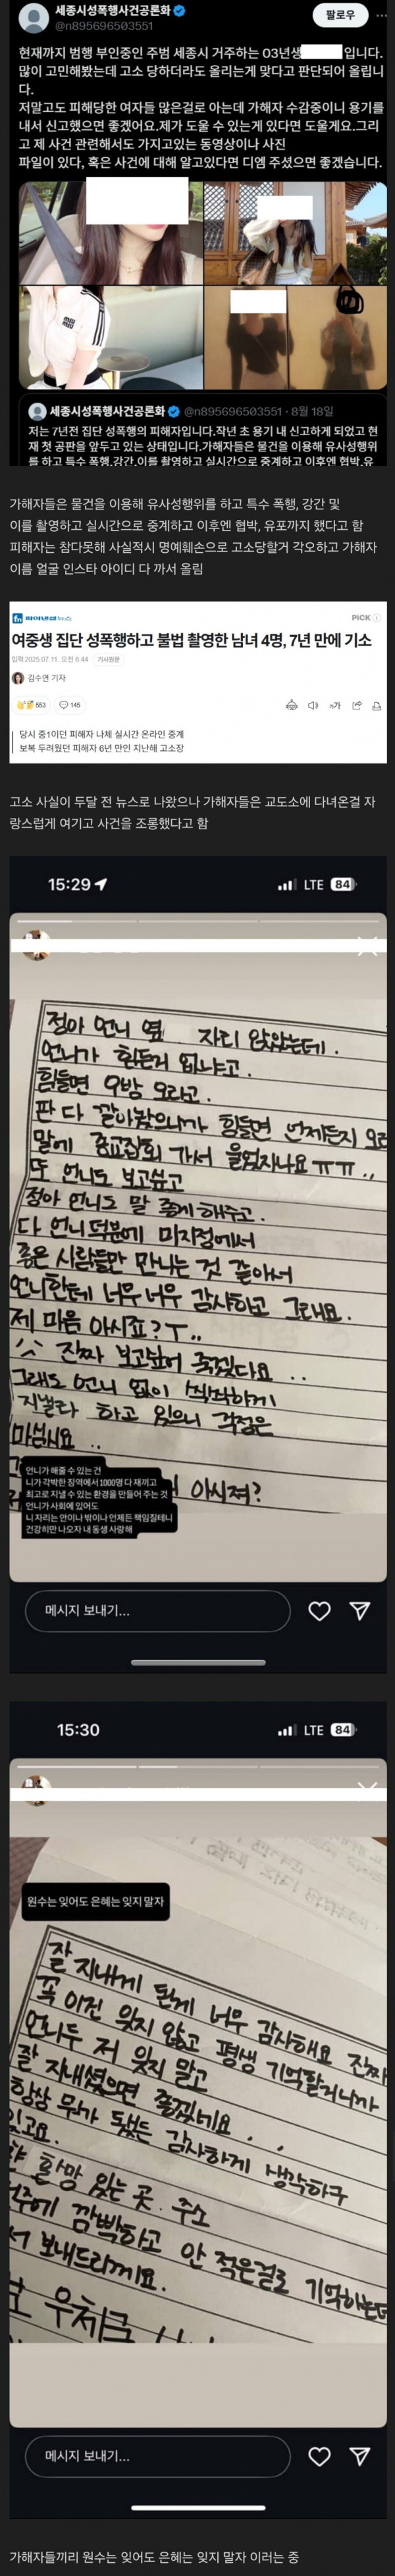 세종시성폭행사건공론화
@n895696503551
팔로우
현재까지 범행 부인중인 주범 세종시 거주하는 03년생 입니다.
많이 고민해봤는데 고소 당하더라도 올리는게 맞다고 판단되어 올립니
다.
저말고도 피해당한 여자들 많은걸로 아는데 가해자 수감중이니 용기를
내서 신고했으면 좋겠어요.제가 도울 수 있는게 있다면 도울게요.그리
고 제 사건 관련해서도 가지고있는 동영상이나 사진
파일이 있다, 혹은 사건에 대해 알고있다면 디엠 주셨으면 좋겠습니다.
세종시성폭행사건공론화 @n895696503551 · 8월 18일
저는 7년전 집단 성폭행의 피해자입니다.작년 초 용기 내 신고하게 되었고 현
재 첫 공판을 앞두고 있는 상태입니다.가해자들은 물건을 이용해 유사성행위
를 하고 특수 폭행,강간,이를 촬영하고 실시간으로 중계하고 이후엔 협박,유
가해자들은 물건을 이용해 유사성행위를 하고 특수 폭행, 강간 및
이를 촬영하고 실시간으로 중계하고 이후엔 협박, 유포까지 했다고 함
피해자는 참다못해 사실적시 명예훼손으로 고소당할거 각오하고 가해자
이름 얼굴 인스타 아이디 다 까서 올림
fn 파이낸셜뉴스
PiCK
여중생 집단 성폭행하고 불법 촬영한 남녀 4명, 7년 만에 기소
입력 2025.07.11. 오전 6:44 기사원문
김수연 기자
553 145
당시 중1이던 피해자 나체 실시간 온라인 중계
보복 두려웠던 피해자 6년 만인 지난해 고소장
고소 사실이 두달 전 뉴스로 나왔으나 가해자들은 교도소에 다녀온걸 자
랑스럽게 여기고 사건을 조롱했다고 함
15:29 LTE 84
정아 언니 옆 자리 앉았는데.
언니가 힘든거 있냐고.
힘들면 오방 오라고.
판 다 깔아놨으니까 힘들면 언제든지 오라
말에 종교집회 가서 울었자나요 ㅠㅠ..
또 언니도 보고싶고
정아 언니도 말 좋게 해주고.
다 언니 덕분에 미지정에서
좋은 사람들만 만나는 것 같아서
언니한테 너무너무 감사하고 그래요.
제 마음 아시죠?ㅜ..
진짜 보고싶어 죽겠다요..
그래도 언니 없이 씩씩하게
지낼라 하고 있으니 걱정은
마십시요..
아시져?
언니가 해줄 수 있는 건
니가 각박한 징역에서 1000명 다 재끼고
최고로 지낼 수 있는 환경을 만들어 주는 것
언니가 사회에 있어도
니 자리는 안이나 밖이나 언제든 책임질테니
건강히만 나오자 내 동생 사랑해
메시지 보내기...
15:30 LTE 84
원수는 잊어도 은혜는 잊지 말자
잘 지내게 된게 너무 감사해요 진짜
꼭 이건 잊지 않고 평생 기억할거니까
언니두 저 잊지 말고
잘 지내셨으면 좋겠네요..
항상 뭐가 됐든 감사하게 생각하구
있고요.
희망 있는 곳. 주소
깜빡하고 안 적은걸로 기억하는데
서 보내드릴께요.
우체국
메시지 보내기...
가해자들끼리 원수는 잊어도 은혜는 잊지 말자 이러는 중